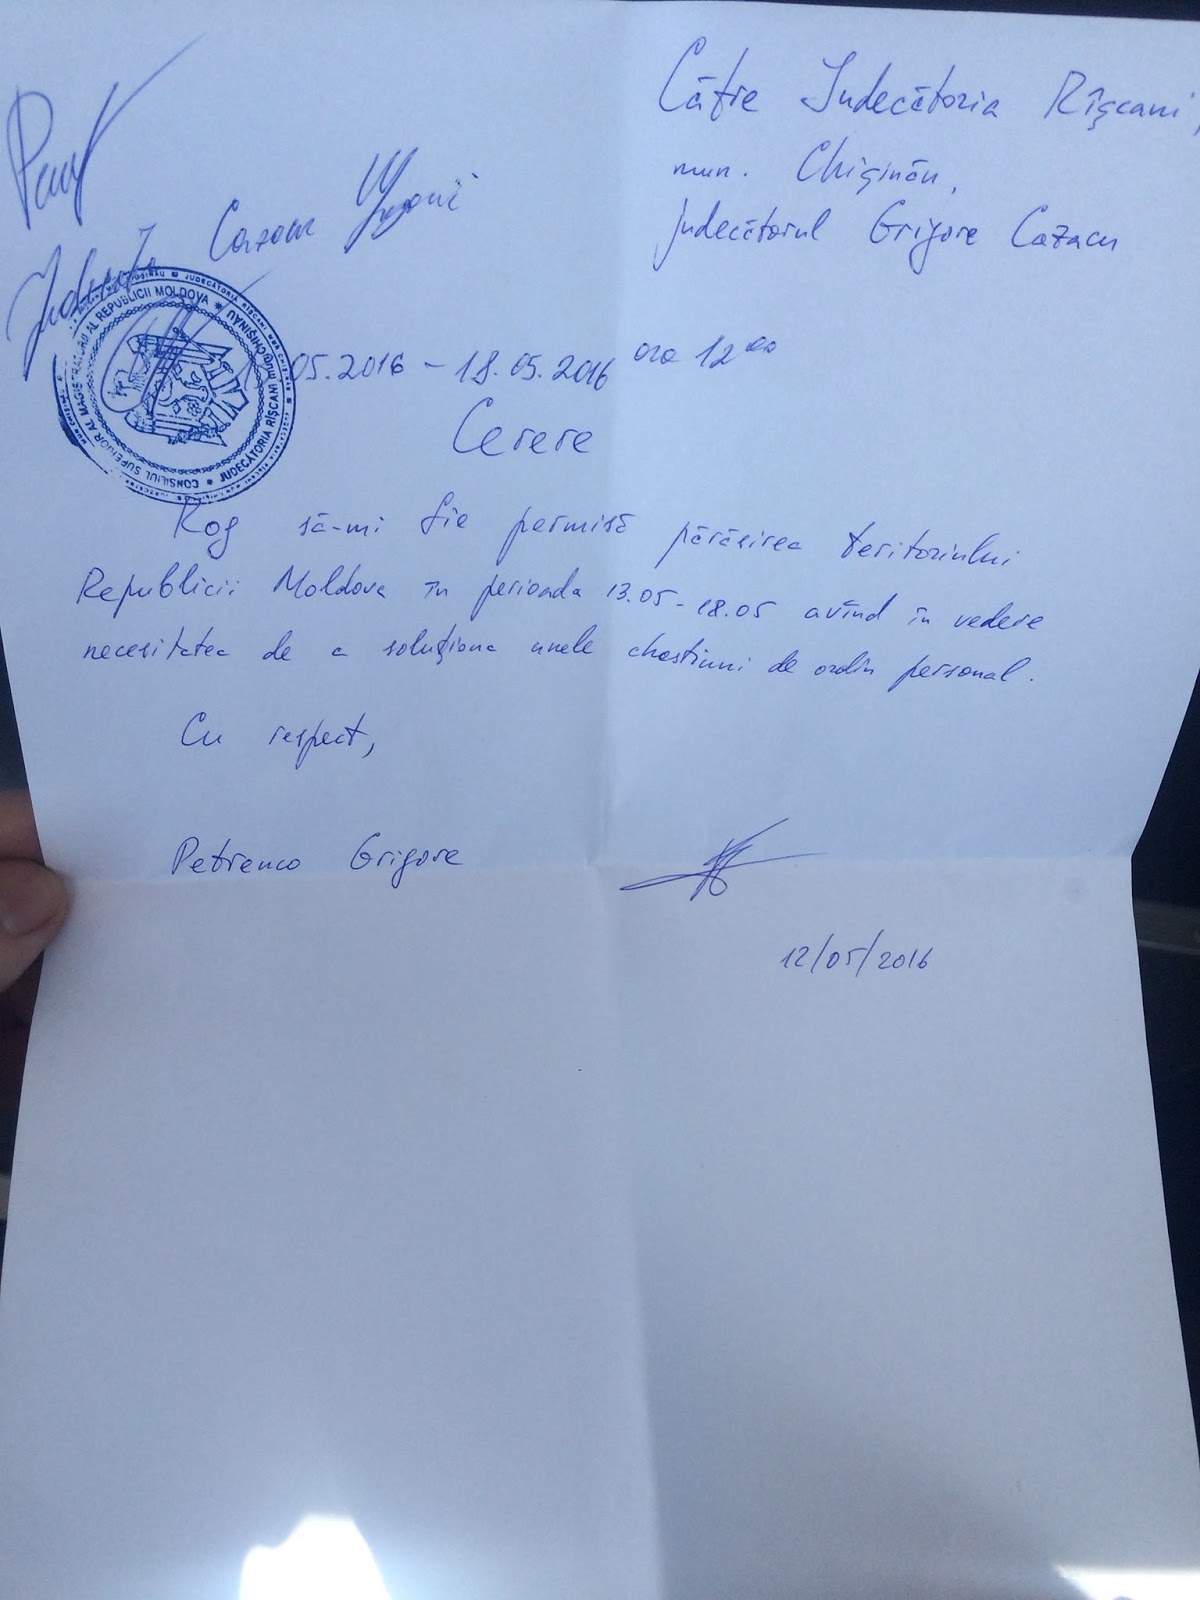 Către Judecătoria Rîşcani,
mun. Chişinău,
judecătorul Grigore Cazacu
Cazacu
CONSILIUL SUPERIOR AL MAGISTRATURII AL REPUBLICII MOLDOVA
JUDECĂTORIA RÎŞCANI MUN. CHIŞINĂU
05.2016 - 18.05.2016 ora 12 00
Cerere
Rog să-mi fie permisă părăsirea teritoriului
Republicii Moldova în perioada 13.05-18.05 avînd în vedere
necesitatea de a soluţiona unele chestiuni de ordin personal.
Cu respect,
Petrenco Grigore
12/05/2016